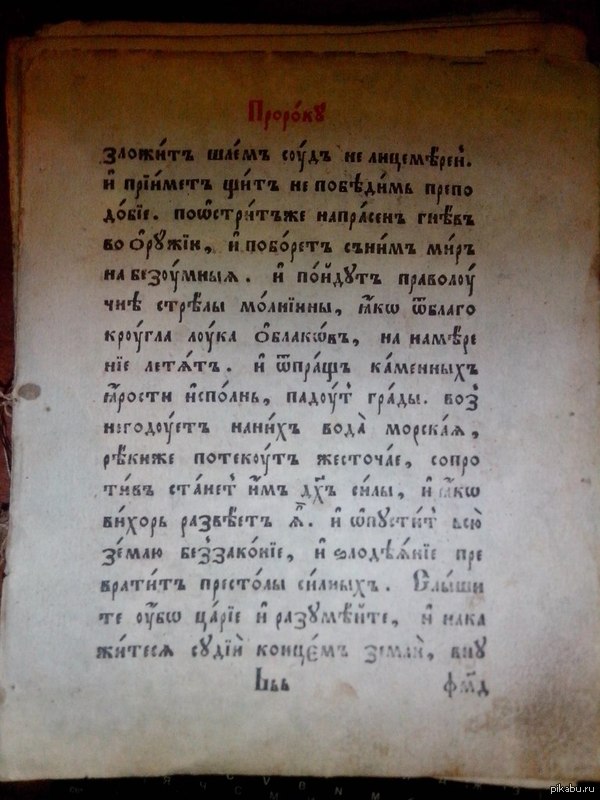 Проро́кꙋ
зложи́тъ шле́мъ соу́дъ не лицемѣ́ренъ.
и҆ прїи́метъ щи́тъ не побѣди́мь препо
до́бїе. поѡ҆стри́тъже напра́сенъ гнѣ́въ
во ѻ҆рꙋ́жїи, и҆ побо́ретъ съни́мъ ми́ръ
на безоу́мныя. и҆ по́йдꙋтъ праволоу́
чнѣ стрѣ́лы мо́лнїины, ꙗ҆́кѡ ѿблаго
кроу́гла лоу́ка ѻ҆́блакѡвъ, на намѣ́ре
нїе летѧ́тъ. и҆ ѿпра́щь ка́менныхъ
ꙗ҆́рости и҆спо́лнь, падоу́тъ гра́ды. воз
негодоу́етъ нани́хъ вода̀ морска́ѧ,
рѣ́киже потекоу́тъ жесточа́е, сопро
ти́въ ста́нетъ и҆̀мъ дх҃ъ си́лы, и҆ ꙗ҆́кѡ
ви́хорь развѣ́етъ ѧ҆̀. и҆ ѡ҆пꙋсти́тъ всю̀
зе́млю беззако́нїе, и҆ ѕлодѣѧ́нїе пре
врати́тъ престо́лы си́лныхъ. Слы́ши
те оу҆̀бѡ ца́рїе и҆ разꙋмѣ́йте, и҆ нака
жи́тесѧ сꙋдїѝ конце́мъ землѝ, внꙋ
фм҃д
pikabu.ru